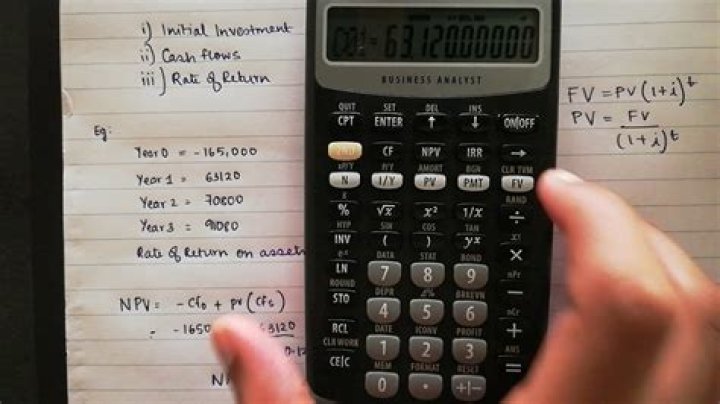 i) Initial Investment
ii) Cash flows
iii) Rate of Return
Eg:
Year 0 = -165,000
Year 1 = 63120
Year 2 = 70800
Year 3 = 91080
Rate of Return on assets
NPV = -Cf0 + PV (Cfs)
= -1650 63120
0.12
N
FV = PV(1+i)^t
PV = FV
(1+i)^t
= 63,120.00000
BUSINESS ANALYST
QUIT SET DEL INS
CPT ENTER ↑ ↓ ON/OFF
2ND CF NPV IRR →
xP/Y P/Y AMORT BGN CLR TVM
N I/Y PV PMT FV
K RAND
% √x x² 1/x ÷
HYP SIN COS TAN x!
INV ( ) yˣ ×
eˣ DATA STAT BOND nPr
LN 7 8 9 −
ROUND DEPR Δ% BRKEVN nCr
STO 4 5 6 +
DATE ICONV PROFIT ANS
RCL 1 2 3 =
CLR WORK MEM FORMAT RESET
CE|C 0 . +|−